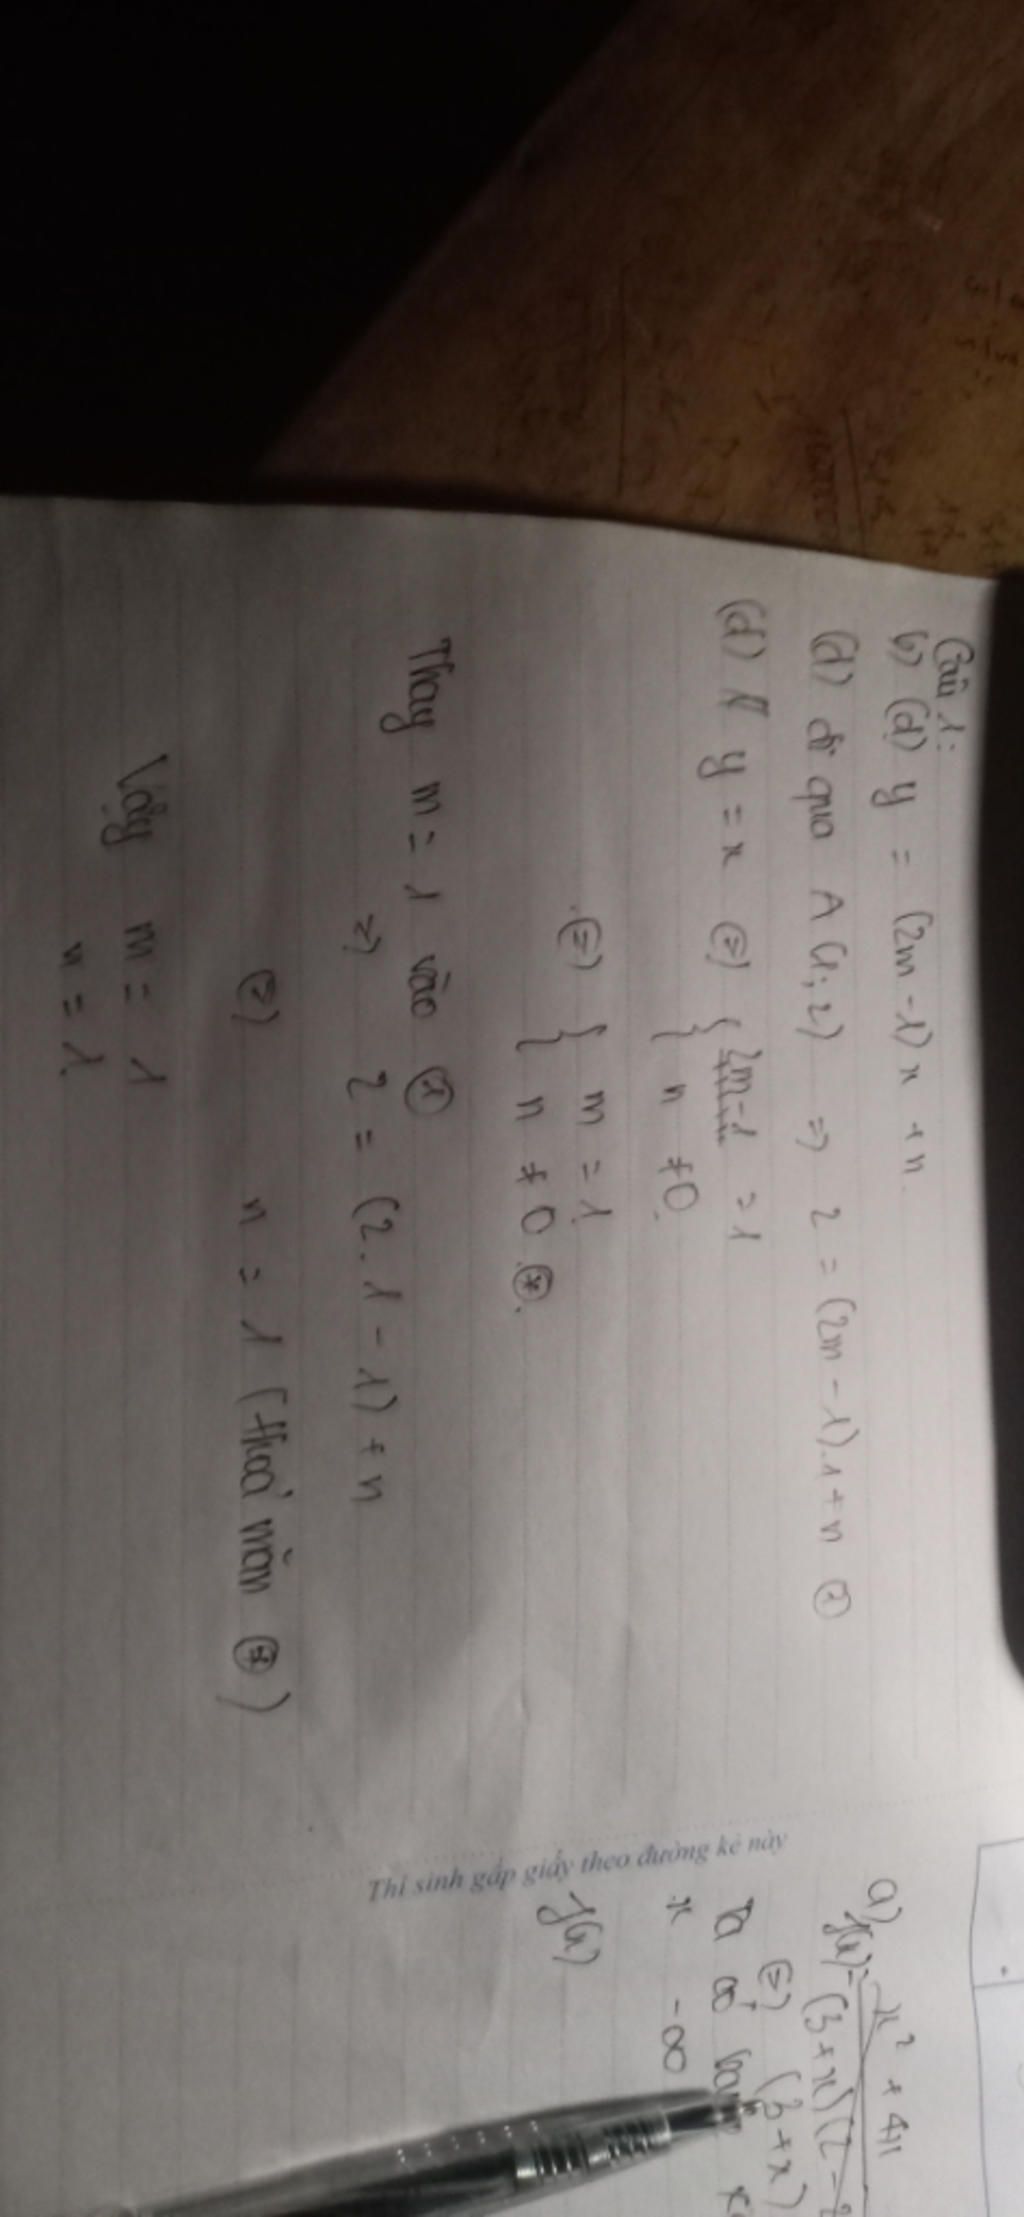 Câu 1:
b) (d) y = (2m - 1)x + n.
(d) đi qua A (1; 2) => 2 = (2m - 1).1 + n (1)
(d) // y = x <=> { 2m-1 = 1
{ n ≠ 0.
<=> { m = 1
{ n ≠ 0 (*).
Thay m = 1 vào (1)
=> 2 = (2.1 - 1) + n
<=> n = 1 (thoả mãn (*))
Vậy m = 1
n = 1.
Thí sinh gấp giấy theo đường kẻ này
a)
x² + 4x
f(x) = (3+x)(2 -
<=> (3+x)
Ta có
x -∞
f(x)